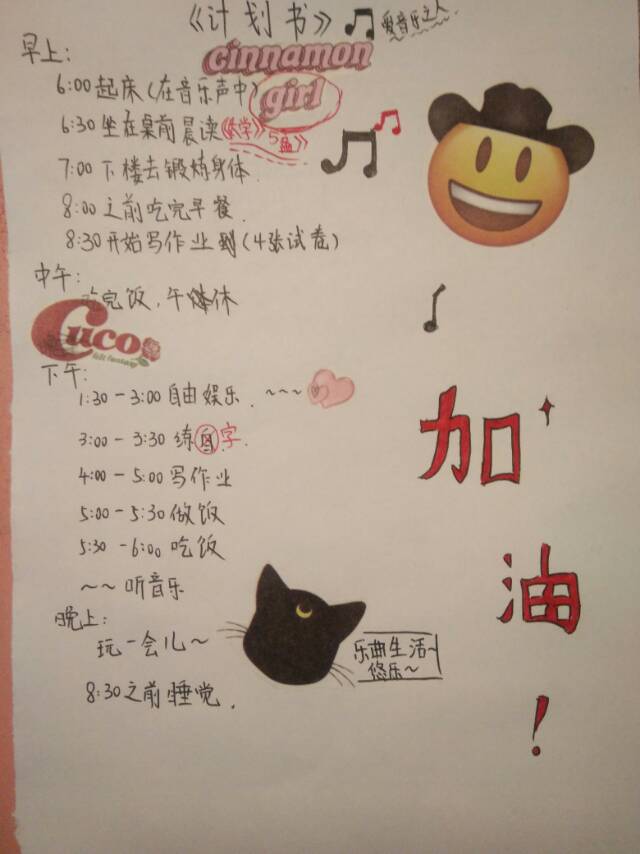 《计划书》
爱音乐之人
早上：
cinnamon
girl
6:00 起床(在音乐声中)
6:30 坐在桌前晨读
7:00 下楼去锻炼身体.
8:00 之前吃完早餐.
8:30 开始写作业 (4张试卷)
中午：
吃完饭，午休
Cuco
下午：
1:30－3:00 自由娱乐. ~~~
3:00－3:30 练字.
4:00－5:00 写作业
5:00－5:30 做饭
5:30 －6:00 吃饭
~~ 听音乐
晚上：
玩一会儿~
8:30 之前睡觉.
乐曲生活~
悠乐~
加
油
!